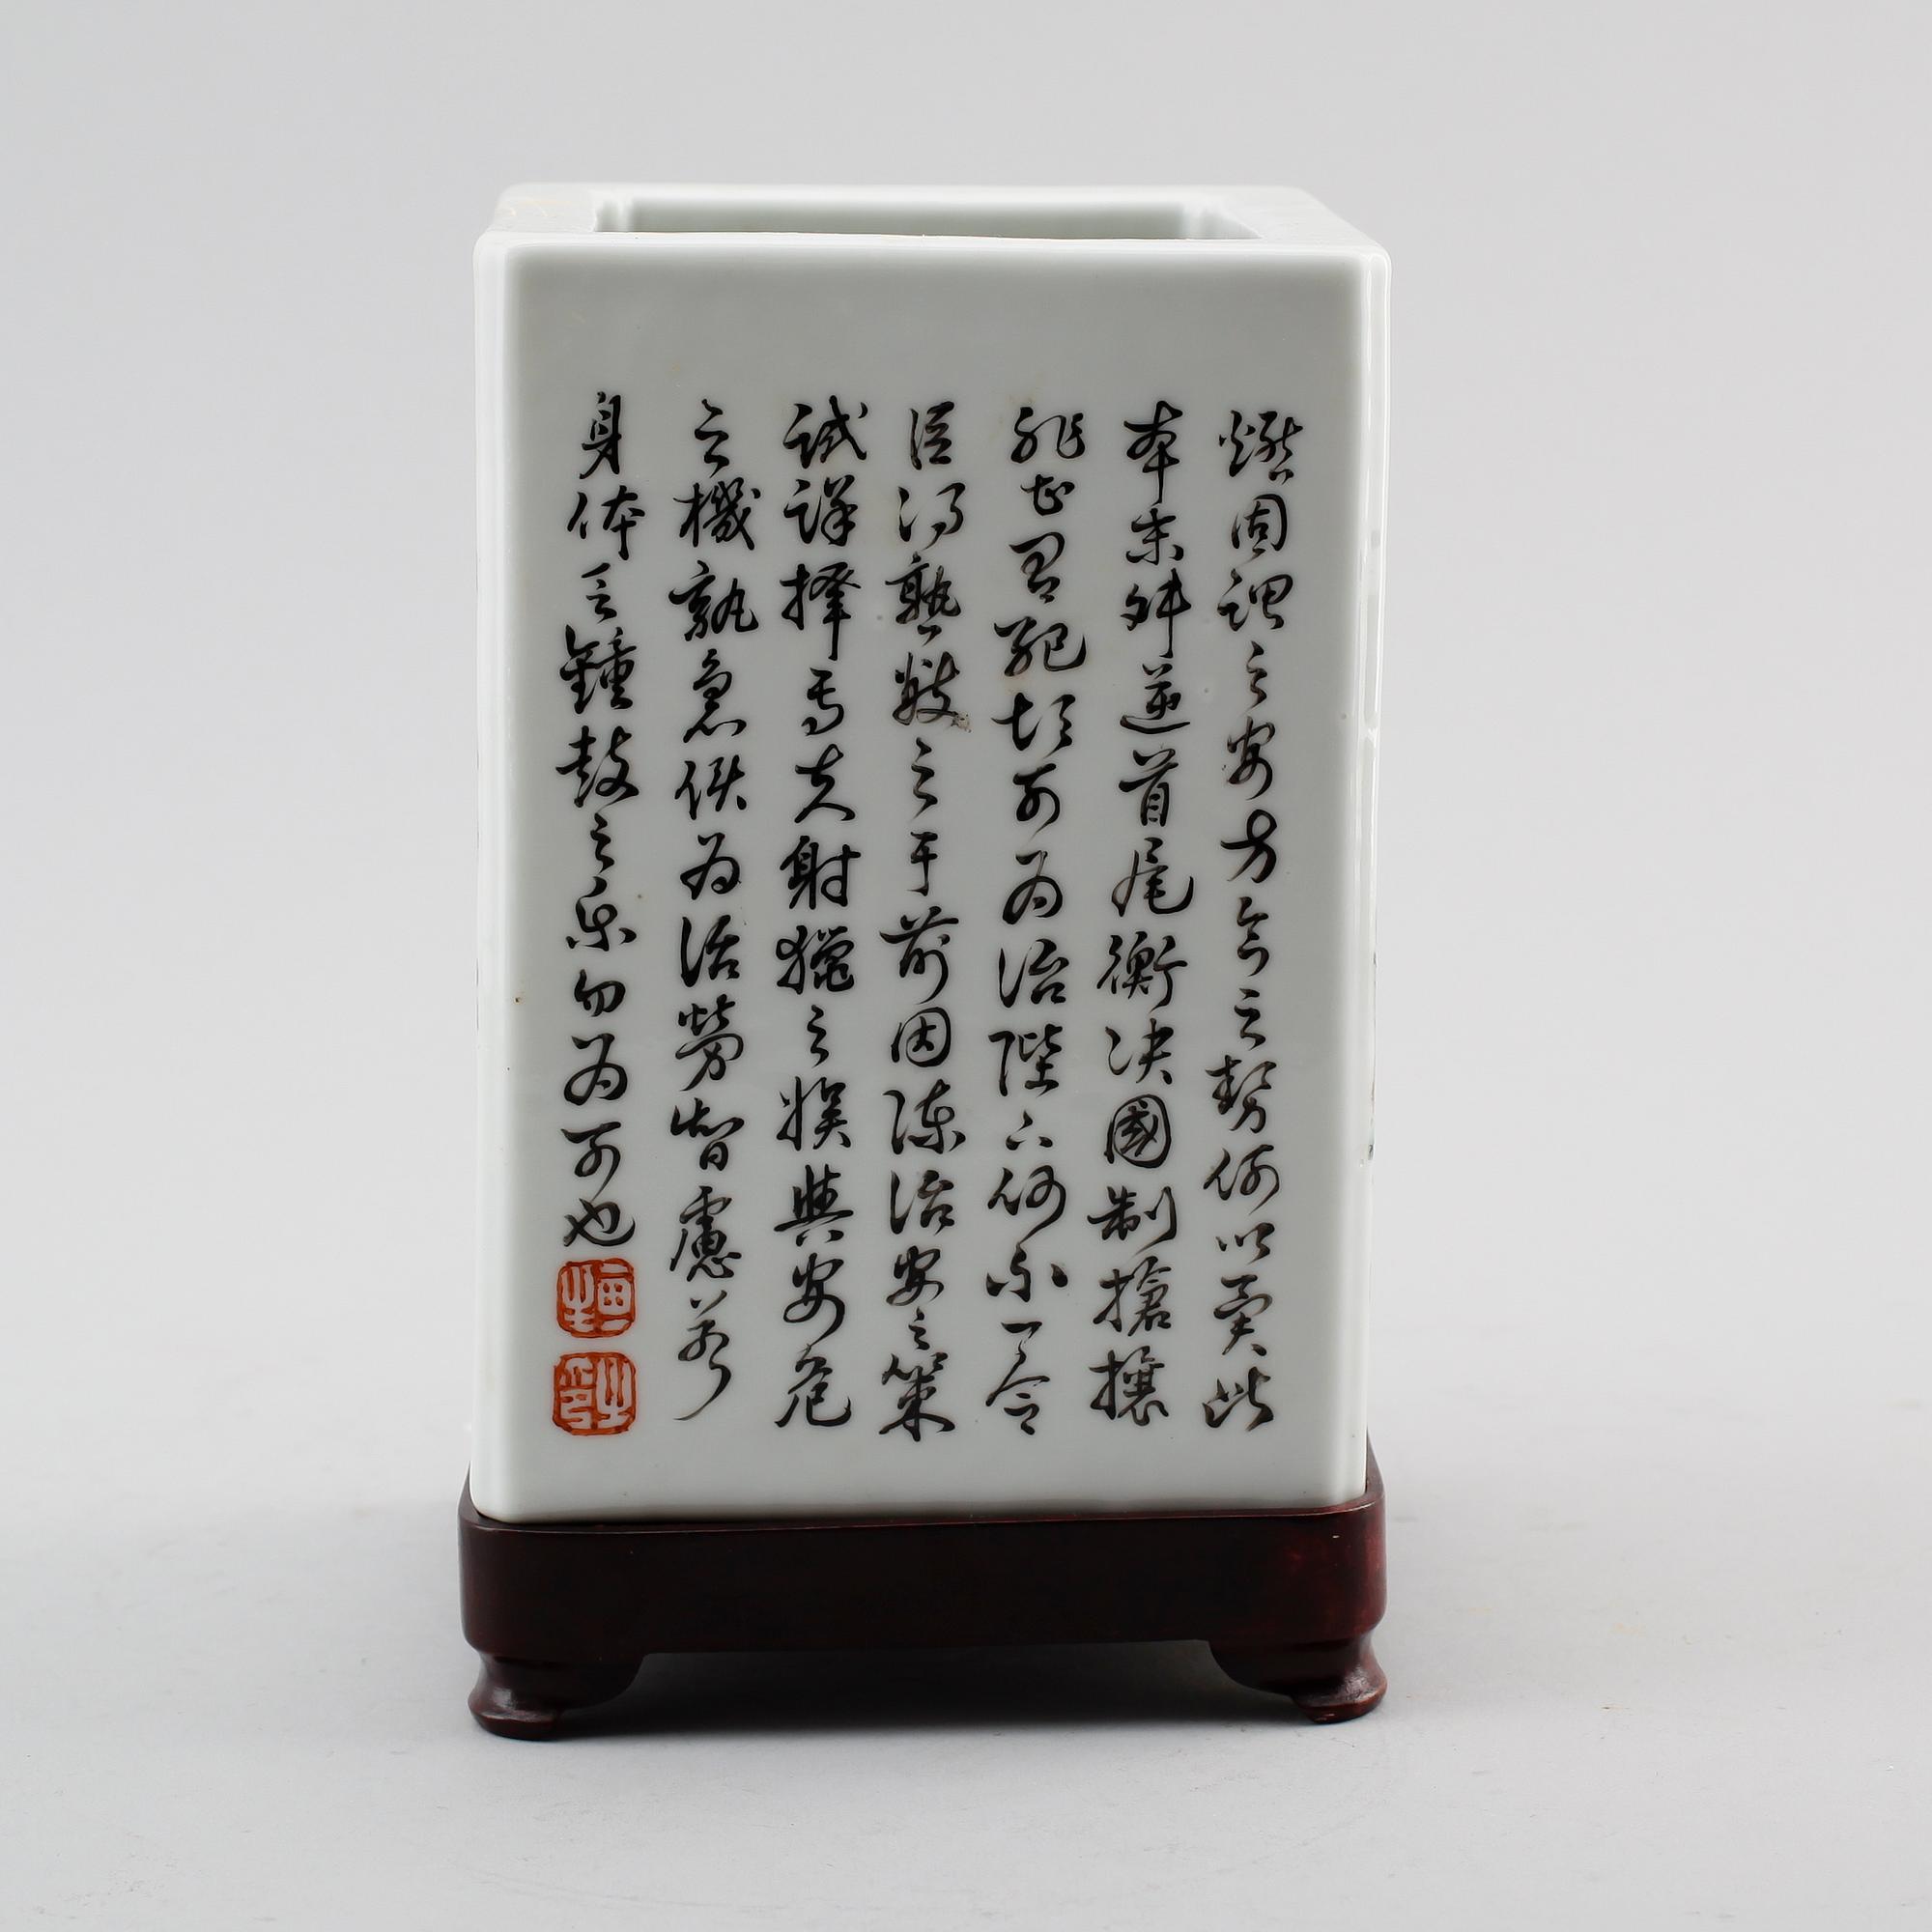 燃固謂之安方今之勢何以異此
本末舛逆首尾衡决國制搶攘
非甚有紀胡可為治陛下何不一令
臣得熟數之于前因陳治安之策
試詳擇焉夫射獵之娛與安危
之機孰急使為治勞智慮苦
身体乏鐘鼓之樂勿為可也